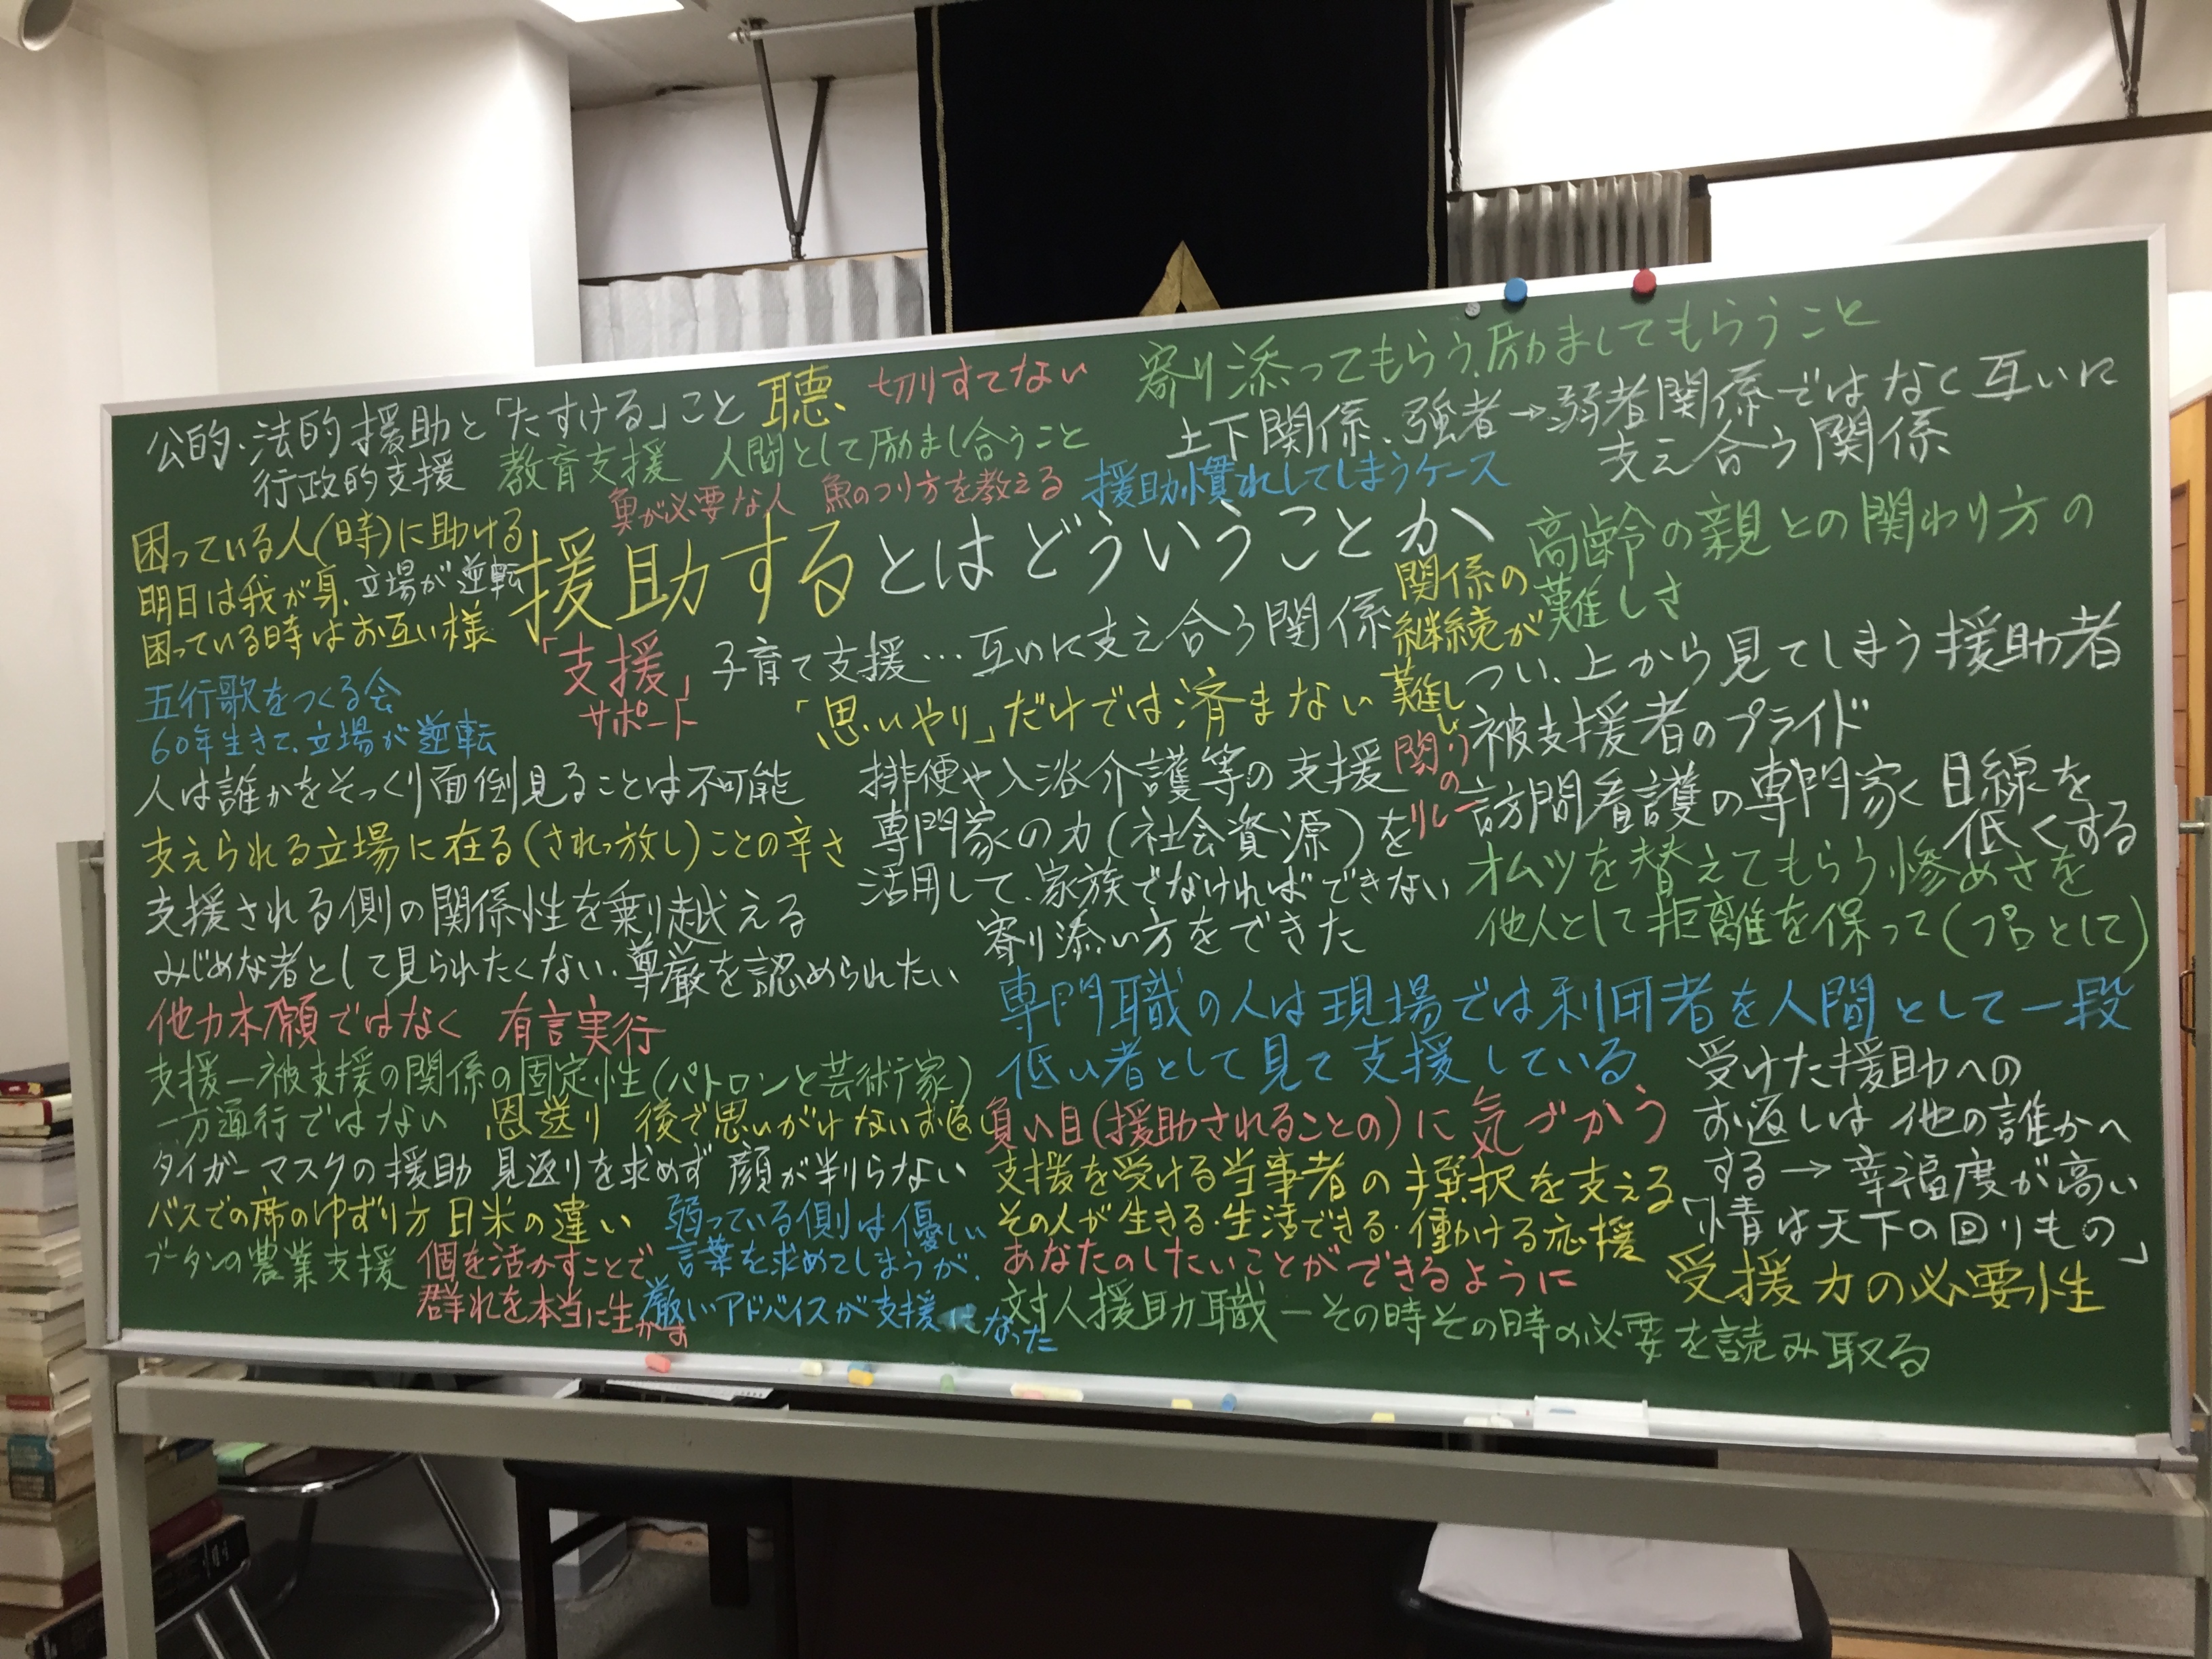 公的・法的援助と「たすける」こと
行政的支援
聴
切りすてない
教育支援
人間として励まし合うこと
寄り添ってもらう、励ましてもらうこと
上下関係、強者→弱者関係ではなく互いに
支え合う関係
魚が必要な人 魚のつり方を教える
援助慣れしてしまうケース
援助するとはどういうことか
困っている人(時)に助ける
明日は我が身、立場が逆転
困っている時はお互い様
五行歌をつくる会
60年生きて、立場が逆転
「支援」
サポート
子育て支援…互いに支え合う関係
「思いやり」だけでは済まない
関係の
継続が
難しい
高齢の親との関わり方の
難しさ
つい、上から見てしまう援助者
被支援者のプライド
関りの
リレー
訪問看護の専門家く目線を
低くする
オムツを替えてもらう惨めさを
他人として距離を保って(プロとして)
人は誰かをそっくり面倒見ることは不可能
支えられる立場に在る(されっ放し)ことの辛さ
支援される側の関係性を乗り越える
みじめな者として見られたくない、尊厳を認められたい
他力本願ではなく 有言実行
排便や入浴介護等の支援
専門家くの力(社会資源)を
活用して、家族でなければできない
寄り添い方をできた
専門職の人は現場では利用者を人間として一段
低い者として見て支援している
支援ー被支援の関係の固定性(パトロンと芸術家)
一方通行ではない
恩送り 後で思いがけないお返し
タイガーマスクの援助 見返りを求めず 顔が判らない
バスでの席のゆずり方 日米の違い
ブータンの農業支援
個を活かすことで
群れを本当に生かす
弱っている側は優しい
言葉を求めてしまうが、
厳しいアドバイスが支援になった
負い目(援助されることの)に気づかう
支援を受ける当事者の選択を支える
その人が生きる・生活できる・働かける応援
あなたのしたいことができるように
対人援助職ーその時その時の必要を読み取る
受けた援助への
お返しは他の誰かへ
する→幸福度が高い
「情は天下の回りもの」
受援力の必要性